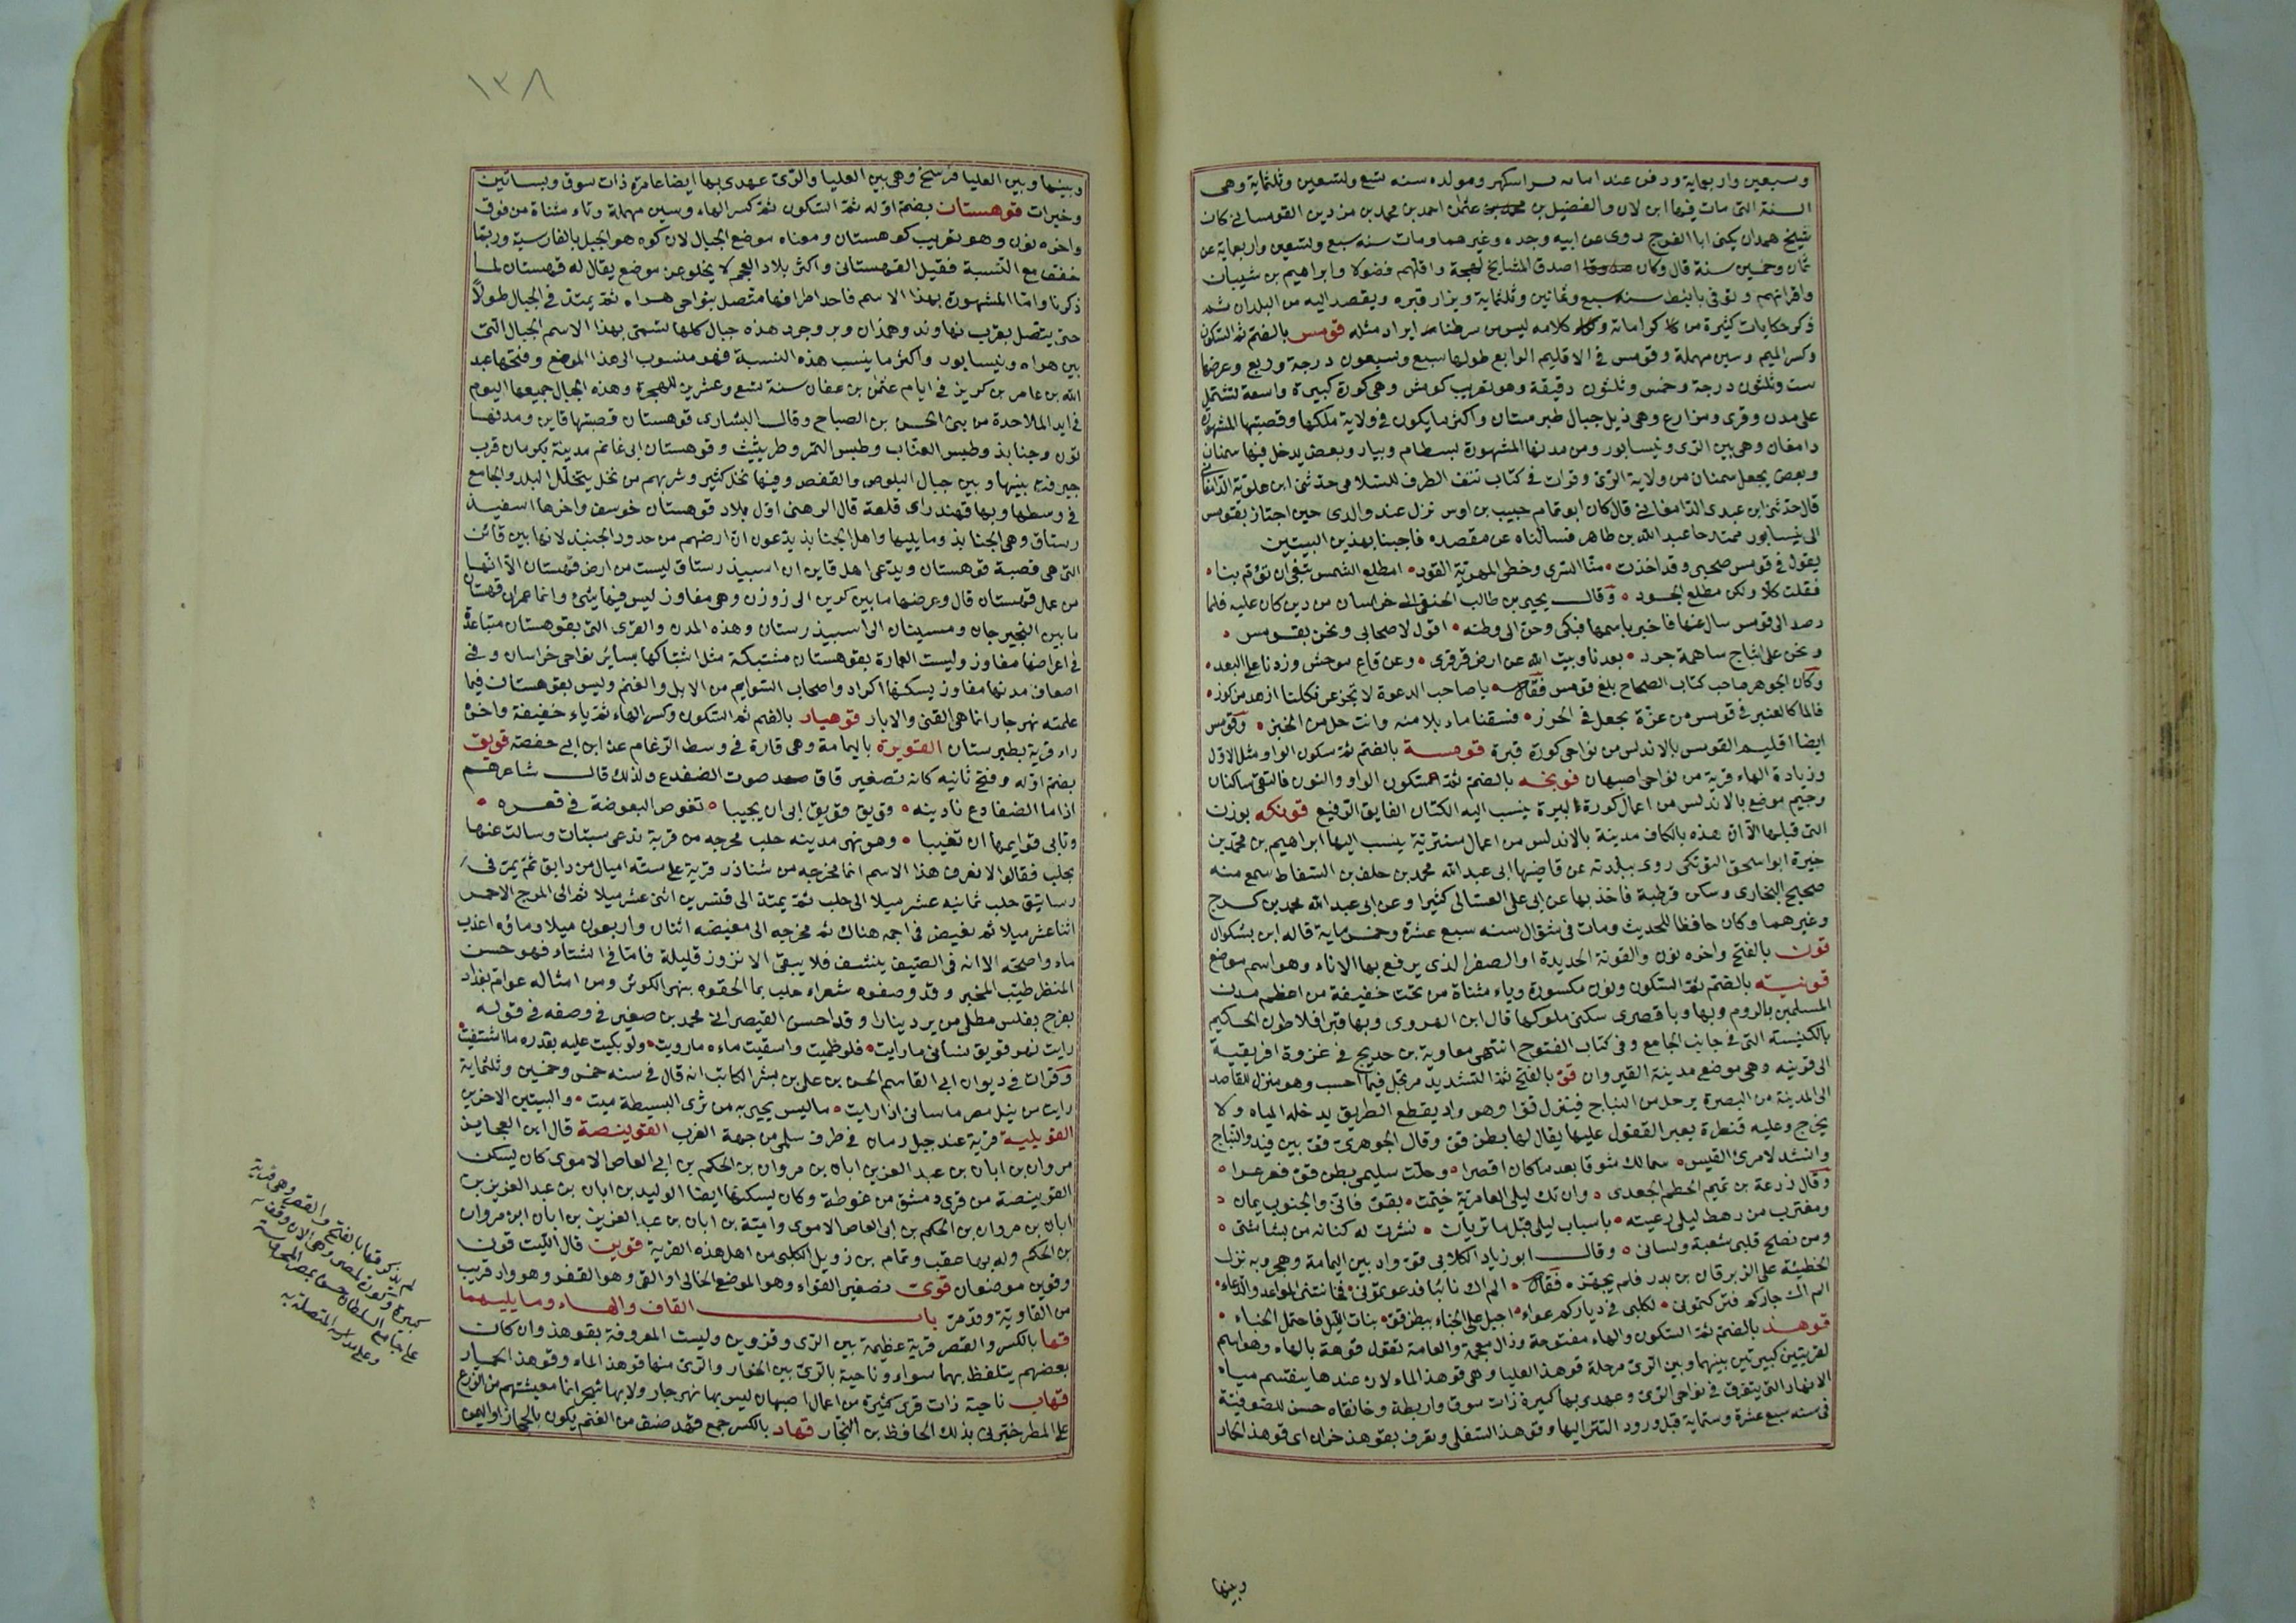 وسبعين واربعماية ودفن عند امامه سراسكهر ومولده سنه تسع وتسعين وثلثماية وهى
السنة التى مات فيها ابن لان والفضيل بن محمد بن عثمان احمد بن محمد بن مزدين القومسانى كان
شيخ همدان يكنى ابا الفرج روى عن ابيه وجده وغيرهما ومات سنه سبع وتسعين واربعماية عن
ثمان وخمسين سنة قال وكان صدوقا اصدق المشايخ لهجة واقلهم فضولا وابراهيم بن شيبان
واقرانهم وتوفى بانبط سنه سبع وثمانين وثلثماية ويزار قبره ويقصد اليه من البلدان ثم
ذكر حكايات كثيرة من كراماته وكلامه ليس من شرطنا ايراد مثله قومس بالضم ثم السكون
وكسر الميم وسين مهملة وقومس فى الاقليم الرابع طولها سبع وسبعون درجة وربع وعرضها
ست وثلثون درجة وخمس وثلثون دقيقة وهو تعريب كومش وهى كورة كبيرة واسعة تشتمل
على مدن وقرى ومزارع وهى ذيل جبال طبرستان واكثر ما يكون فى ولاية ملكها وقصبتها المشهورة
دامغان وهى بين الرى ونيسابور ومن مدنها المشهورة بسطام وبيار وبعض يدخل فيها سمنان
وبعض يجعل سمنان من ولاية الرى وقرات فى كتاب نتف الطرف للسلامى حدثنى ابن علوية الدامغانى
قال حدثنى ابن عبدى الدامغانى قال كان ابو تمام حبيب بن اوس نزل عند والدى حين اجتاز بقومس
الى نيسابور ممتدحا عبد الله بن طاهر فسالناه عن مقصده فاجبنا بهذين البيتين
يقول فى قومس صحبى وقد اخذت • منا السرى وخطى المهرية القود • امطلع الشمس تبغى ان تؤم بنا •
فقلت كلا ولكن مطلع الجود • وقال يحيى بن طالب الحنفى الى خراسان من دين كان عليه فلما
وصد الى قومس سال عنها فاخبر باسمها فبكى وحن الى وطنه • اقول لاصحابى ونحن بقومس •
ونحن على اثباج ساهمة جرد • بعدنا وبيت الله عن ارض قرقرى • وعن قاع موحش وزدنا على البعد •
وكان الجوهر صاحب كتاب الصحاح بلغ قومس فقال يا صاحب الدعوة لا تجزعن فكلنا ازهد من كرز •
فالما كالعنبر فى قومس من عزة يجعل فى الحرز • فسقنا ماء بلا منه وانت حل من الخبز • وقومس
ايضا اقليم القومس بالاندلس من نواحى كورة قبرة قومسة بالضم ثم سكون الواو مثل الاول
وزيادة الهاء قرية من نواحى اصبهان قونجه بالضم ثم السكون الواو والنون فالتقى ساكنان
وجيم موضع بالاندلس من اعمال كورة البيرة ينسب اليه الكتان الفايق الرفيع قونكه بوزن
التى قبلها الا ان هذه بالكاف مدينة بالاندلس من اعمال سنترية ينسب اليها ابراهيم بن محمد بن
خيرة ابو اسحق القونكى روى ببلدته عن قاضيها ابى عبد الله محمد بن خلف بن السقاط سمع منه
صحيح البخارى وسكن قرطبة فاخذ بها عن ابى على الغسانى كثيرا وعن ابى عبد الله محمد بن فرج
وغيرهما وكان حافظا للحديث ومات فى شوال سنه سبع عشرة وخمسماية قاله ابن بشكوال
قون بالفتح واخره نون والقونة الحديدة او الصفر الذى يرفع بها الاناء وهو اسم موضع
قونيه بالضم ثم السكون ونون مكسورة وياء مثناة من تحت خفيفة من اعظم مدن
المسلمين بالروم وبها وباقصرى سكنى ملوكها قال ابن الهروى وبها قبر افلاطون الحكيم
بالكنيسه التى فى جانب الجامع وفى كتاب الفتوح انتهى معاوية بن حديج فى غزوة افريقية
الى قونيه وهى موضع مدينة القيروان قو بالفتح ثم التشديد مرتجل فيما احسب وهو منزل للقاصد
الى المدينة من البصرة يرحل من النباج فينزل قوا وهو واد يقطع الطريق يدخله المياه ولا
يخرج وعليه قنطرة يعبر القفول عليها يقال لها بطن قو وقال الجوهرى قو بين فيد والنباج
وانشد لامرئ القيس • سمالك شوقا بعد ما كان اقصرا • وحلت سليمى بطن قو فعرعرا •
وقال زرعة بن تميم الحطم الجعدى • وان تك ليلى العامرية خيمت • بقو فانى والجنوب يمان •
ومغترب من رهط ليلى رعيته • باسباب ليلى قبل ما تريان • نشرت له كنانه من بشاشتى •
ومن نصح قلبى شعبة ولسانى • وقال ابو زياد الكلابى قو واد بين اليمامة وهجر وبه نزل
الحطيئة على الزبرقان بن بدر فلم يجهزه فقال • الم اك نائيا فدعوتمونى • فخانتنى المواعد والدعاء •
الم اك جاركم فتركتمونى • لكلبى فى دياركم عواء • احيل على الخباء ببطن قو • بنات الليل فاحتمل الخباء •
قوهذ بالضم ثم السكون والهاء مفتوحة وذال معجمة والعامة تقول قوهة بالهاء وهو اسم
لقريتين كبيرتين بينهما وبين الرى مرحلة قوهذ العليا وهى قوهذ الماء لان عندها ينقسم مياه
الانهار التى يتفرق فى نواحى الرى وعهدى بها كبيرة ذات سوق واربطة وخانقاه حسن للصوفية
فى سنه سبع عشرة وستماية قبل ورود التتر اليها وقوهذ السفلى وتعرف بقوهذ خران اى قوهذ الحار
وبينها
١٣٨
وبينها وبين العليا فرسخ وهى بين العليا والرى عهدى بها ايضا عامرة ذات سوق وبساتين
وخيرات قوهستان بضم اوله ثم السكون ثم كسر الهاء وسين مهملة وتاء مثناة من فوق
واخره نون وهو تعريب كوهستان ومعناه موضع الجبال لان كوه هو الجبل بالفارسية وربما
خفف مع النسبة فقيل القهستانى واكثر بلاد العجم لا يخلو عن موضع يقال له قهستان لما
ذكرنا واما المشهورة بهذا الاسم فاحد اطرافها متصل بنواحى هراه ثم يمتد فى الجبال طولا
حتى يتصل بقرب نهاوند وهمذان وبروجرد هذه جبال كلها تسمى بهذا الاسم الجبال التى
بين هراه ونيسابور واكثر ما ينسب هذه النسبة فهو منسوب الى هذا الموضع وفتحها عبد
الله بن عامر بن كريز فى ايام عثمان بن عفان سنة تسع وعشرين للهجرة وهذه الجبال جميعها اليوم
فى ايد الملاحدة من بنى الحسن بن الصباح وقال البشارى قوهستان قصبتها قاين ومدنها
تون وجنابذ وطبس العناب وطبس التمر وطريثيث وقوهستان ابى غانم مدينة بكرمان قرب
جيرفت بينها وبين جبال البلوص والقفص وفيها نخل كثير وشربهم من نخل يتخلل البلد والجامع
فى وسطها وبها قهندراى قلعة قال الرهنى اول بلاد قوهستان خوسف واخرها اسفيد
رستاق وهى الجنابذ وما يليها واهل الجنابذ يدعون ان ارضهم من حدود الجنبد لانها بين قائن
التى هى قصبة قوهستان ويدعى اهل قاين ان اسبيذ رستاق ليست من ارض قهستان الا انها
من عمل قهستان قال وعرضها ما بين كرين الى زوزن وهى مفاوز ليس فيها شىء وانما عمران قهستان
ما بين النجيرجان ومسينان الى اسبيذ رستان وهذه المدن والقرى التى بقوهستان متباعدة
فى اعراضها مفاوز وليست العمارة بقوهستان مشتبكة مثل اشتباكها بسائر نواحى خراسان وفى
اضعاف مدنها مفاوز يسكنها اكراد واصحاب السوايم من الابل والغنم وليس بقوهستان فيما
علمته نهر جار انما هى القنى والابار قوهيار بالضم ثم السكون وكسر الهاء ثم ياء خفيفة واخره
راء قرية بطبرستان القويرة باليمامة وهى قارة فى وسط الرغام عن ابن ابى حفصة قويق
بضم اوله وفتح ثانيه كانه تصغير قاق صوت الضفدع ولذلك قال شاعرهم
اذا ما الضفادع نادينه • قويق قويق ابى ان يجيبا • تغوص البعوضة فى قعره •
وتابى قوايمها ان تغيبا • وهو نهر مدينه حلب مخرجه من قرية تدعى سبتات وسالت عنها
بحلب فقالوا لا نعرف هذا الاسم انما مخرجه من شناذر قرية على سته اميال من دابق ثم يمر فى
رساتيق حلب ثمانيه عشر ميلا الى حلب ثم يمتد الى قنسرين اثنى عشر ميلا ثم الى المرج الاحمر
اثنا عشر ميلا ثم يغيض فى اجمه هناك ثم مخرجه الى مغيضه اثنان واربعون ميلا وماؤه اعذب
ماء واصحه الا انه فى الصيف ينشف فلا يبقى الا نزوز قليلة فاما فى الشتاء فهو حسن
المنظر طيب المخبر وقد وصفوه شعراء حلب بما الحقوه بنهر الكوثر ومن امثاله عوام بغداد
يفرح بفلس مطلى من ير دينارا وقد احسن القيصرانى محمد بن صغير فى وصفه فى قوله
رايت نهر قويق فساءنى ما رايت • فلو ظمئت واسقيت ماءه ما رويت • ولو بكيت عليه بقدره ما اشتفيت
وقرات فى ديوان ابى القاسم الحسن بن على بن بشر الكاتب انه قال فى سنه خمس وخمسين وثلثماية
رايت من نيل مصر ما ساءنى اذا رايت • ماليس يحيى به من ثرى البسيطة ميت • والبيتين الاخرين
القويلية قرية عند جبل رمان فى طرف سلمى من جهة الغرب القوينصة قال ابن العجايز
مروان بن ابان بن عبد العزيز بن ابان بن مروان بن الحكم بن ابى العاص الاموى كان يسكن
القوينصة من قرى دمشق من غوطة وكان يسكنها ايضا الوليد بن ابان بن عبد العزيز بن
ابان بن مروان بن الحكم بن ابى العاص الاموى وامية بن ابان بن عبد العزيز بن ابان ابن مروان
بن الحكم وله بها عقب وتمام بن زويل الكلبى من اهل هذه القرية قوين قال الليث قون
وقوين موضعان قوى تصغير القواء وهو الموضع الخالى او القى وهو القفر وهو واد قريب
من القاوية وقد مر باب القاف والهاء وما يليهما
قها بالكسر والقصر قرية عظيمة بين الرى وقزوين وليست المعروفة بقوهذ وان كان
بعضهم يتلفظ بهما سواء وناحية بالرى بين الخوار والرى منها قوهذ الماء وقوهذ الحمار
قهاب ناحية ذات قرى كثيرة من اعمال اصبهان ليس بها نهر جار ولا بها شجر انما معيشتهم من الزرع
على المطر خبرنى بذلك الحافظ بن النجار قهاد بالكسر جمع قهد صنف من الغنم يكون بالحجاز او اليمن
لم يذكر قها بالفتح والقصر وهى قرية
كبيرة وكورة بمصر وهى الان وقف
على جامع السلطان حسن بمصر المحروسة
وعلى مدرسته المتصلة به